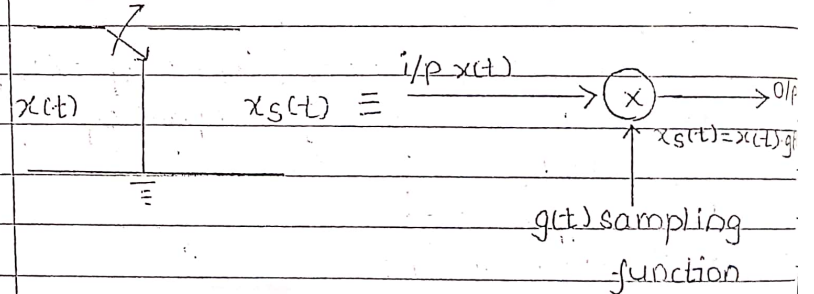 i/p x(t)
x(t) xs(t) ≡ X O/P
xs(t)=x(t).g(
g(t) sampling
function